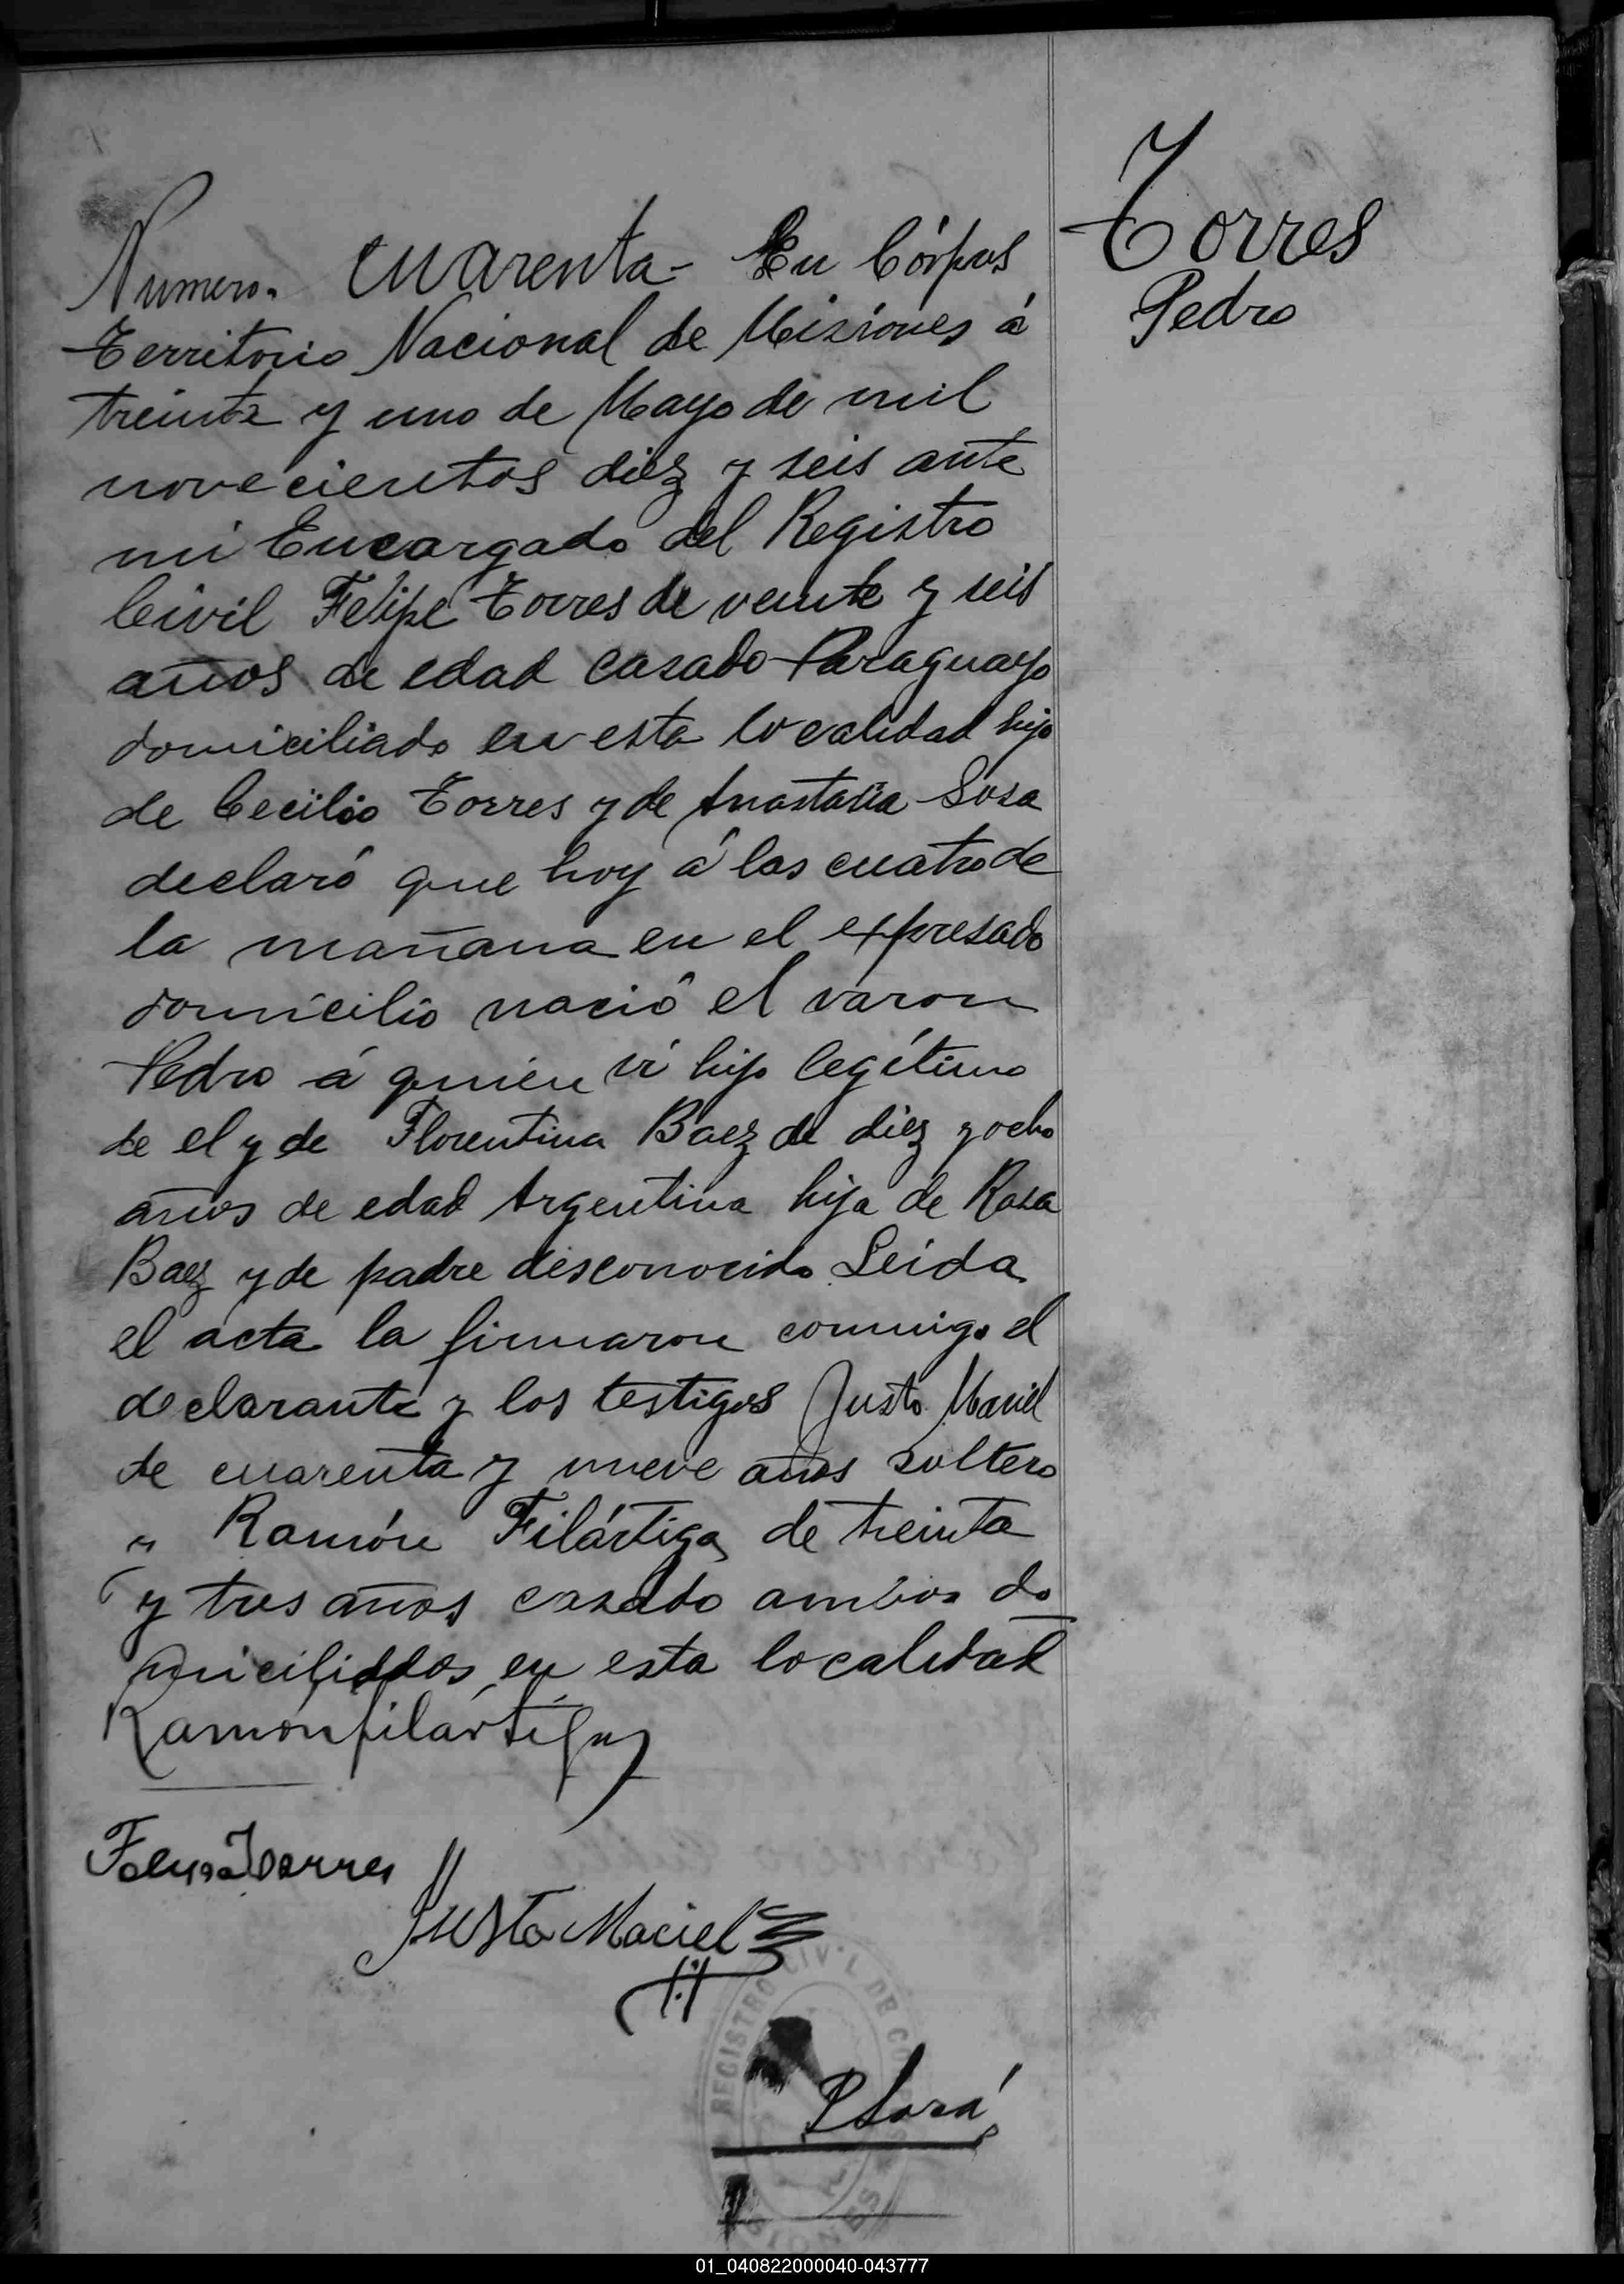 Torres
Pedro
Numero. cuarenta- En Córpus
Territorio Nacional de Misiones á
treinta y uno de Mayo de mil
novecientos diez y seis ante
mi Encargado del Registro
Civil Felipe Torres de veinte y seis
años de edad casado Paraguayo
domiciliado en esta localidad hijo
de Cecilio Torres y de Anastasia Sosa
declaró que hoy á las cuatro de
la mañana en el expresado
domicilio nació el varon
Pedro á quien ví hijo legítimo
de el y de Florentina Baez de diez y ocho
años de edad Argentina hija de Rosa
Baez y de padre desconocido Leida
el acta la firmaron conmigo el
declarante y los testigos Justo Maciel
de cuarenta y nueve años soltero
y Ramón Filártiga de treinta
y tres años casado ambos do
miciliados en esta localidad
Ramón filártiga
Felipe Torres
Justo Maciel
REGISTRO CIVIL DE
MISIONES
01_040822000040-043777